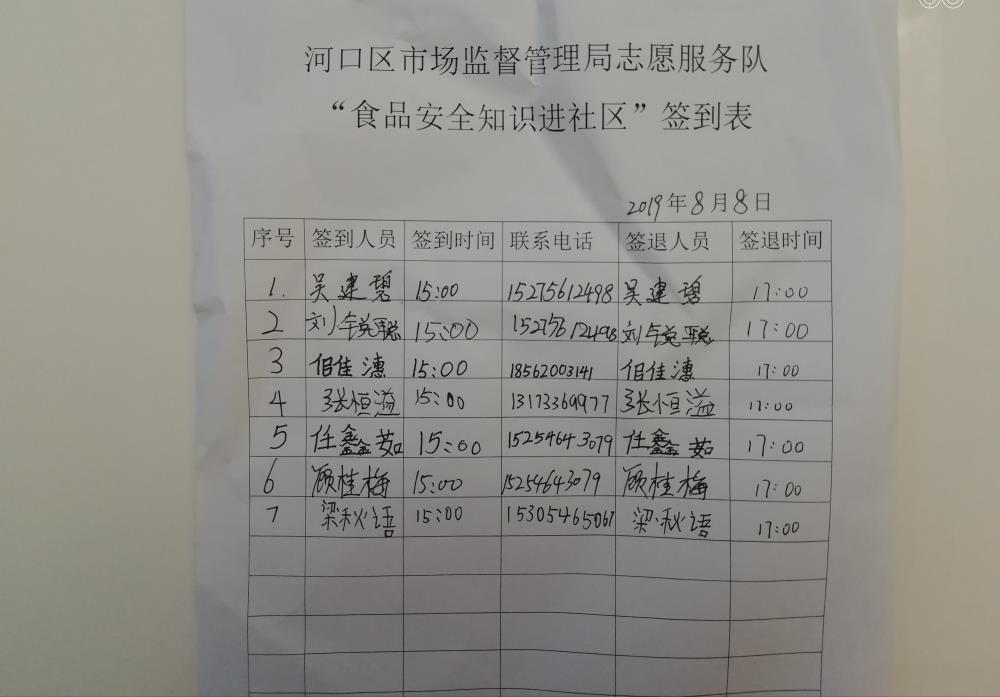 河口区市场监督管理局志愿服务队
“食品安全知识进社区”签到表
2019年8月8日
序号 签到人员 签到时间 联系电话 签退人员 签退时间
1. 吴建碧 15:00 15275612498 吴建碧 17:00
2 刘锐聪 15:00 15275612498 刘锐聪 17:00
3 佀佳潓 15:00 18562003141 佀佳潓 17:00
4 张恒溢 15:00 13173369977 张恒溢 17:00
5 任鑫茹 15:00 15254643079 任鑫茹 17:00
6 顾桂梅 15:00 15254643079 顾桂梅 17:00
7 梁秋语 15:00 15305465067 梁秋语 17:00